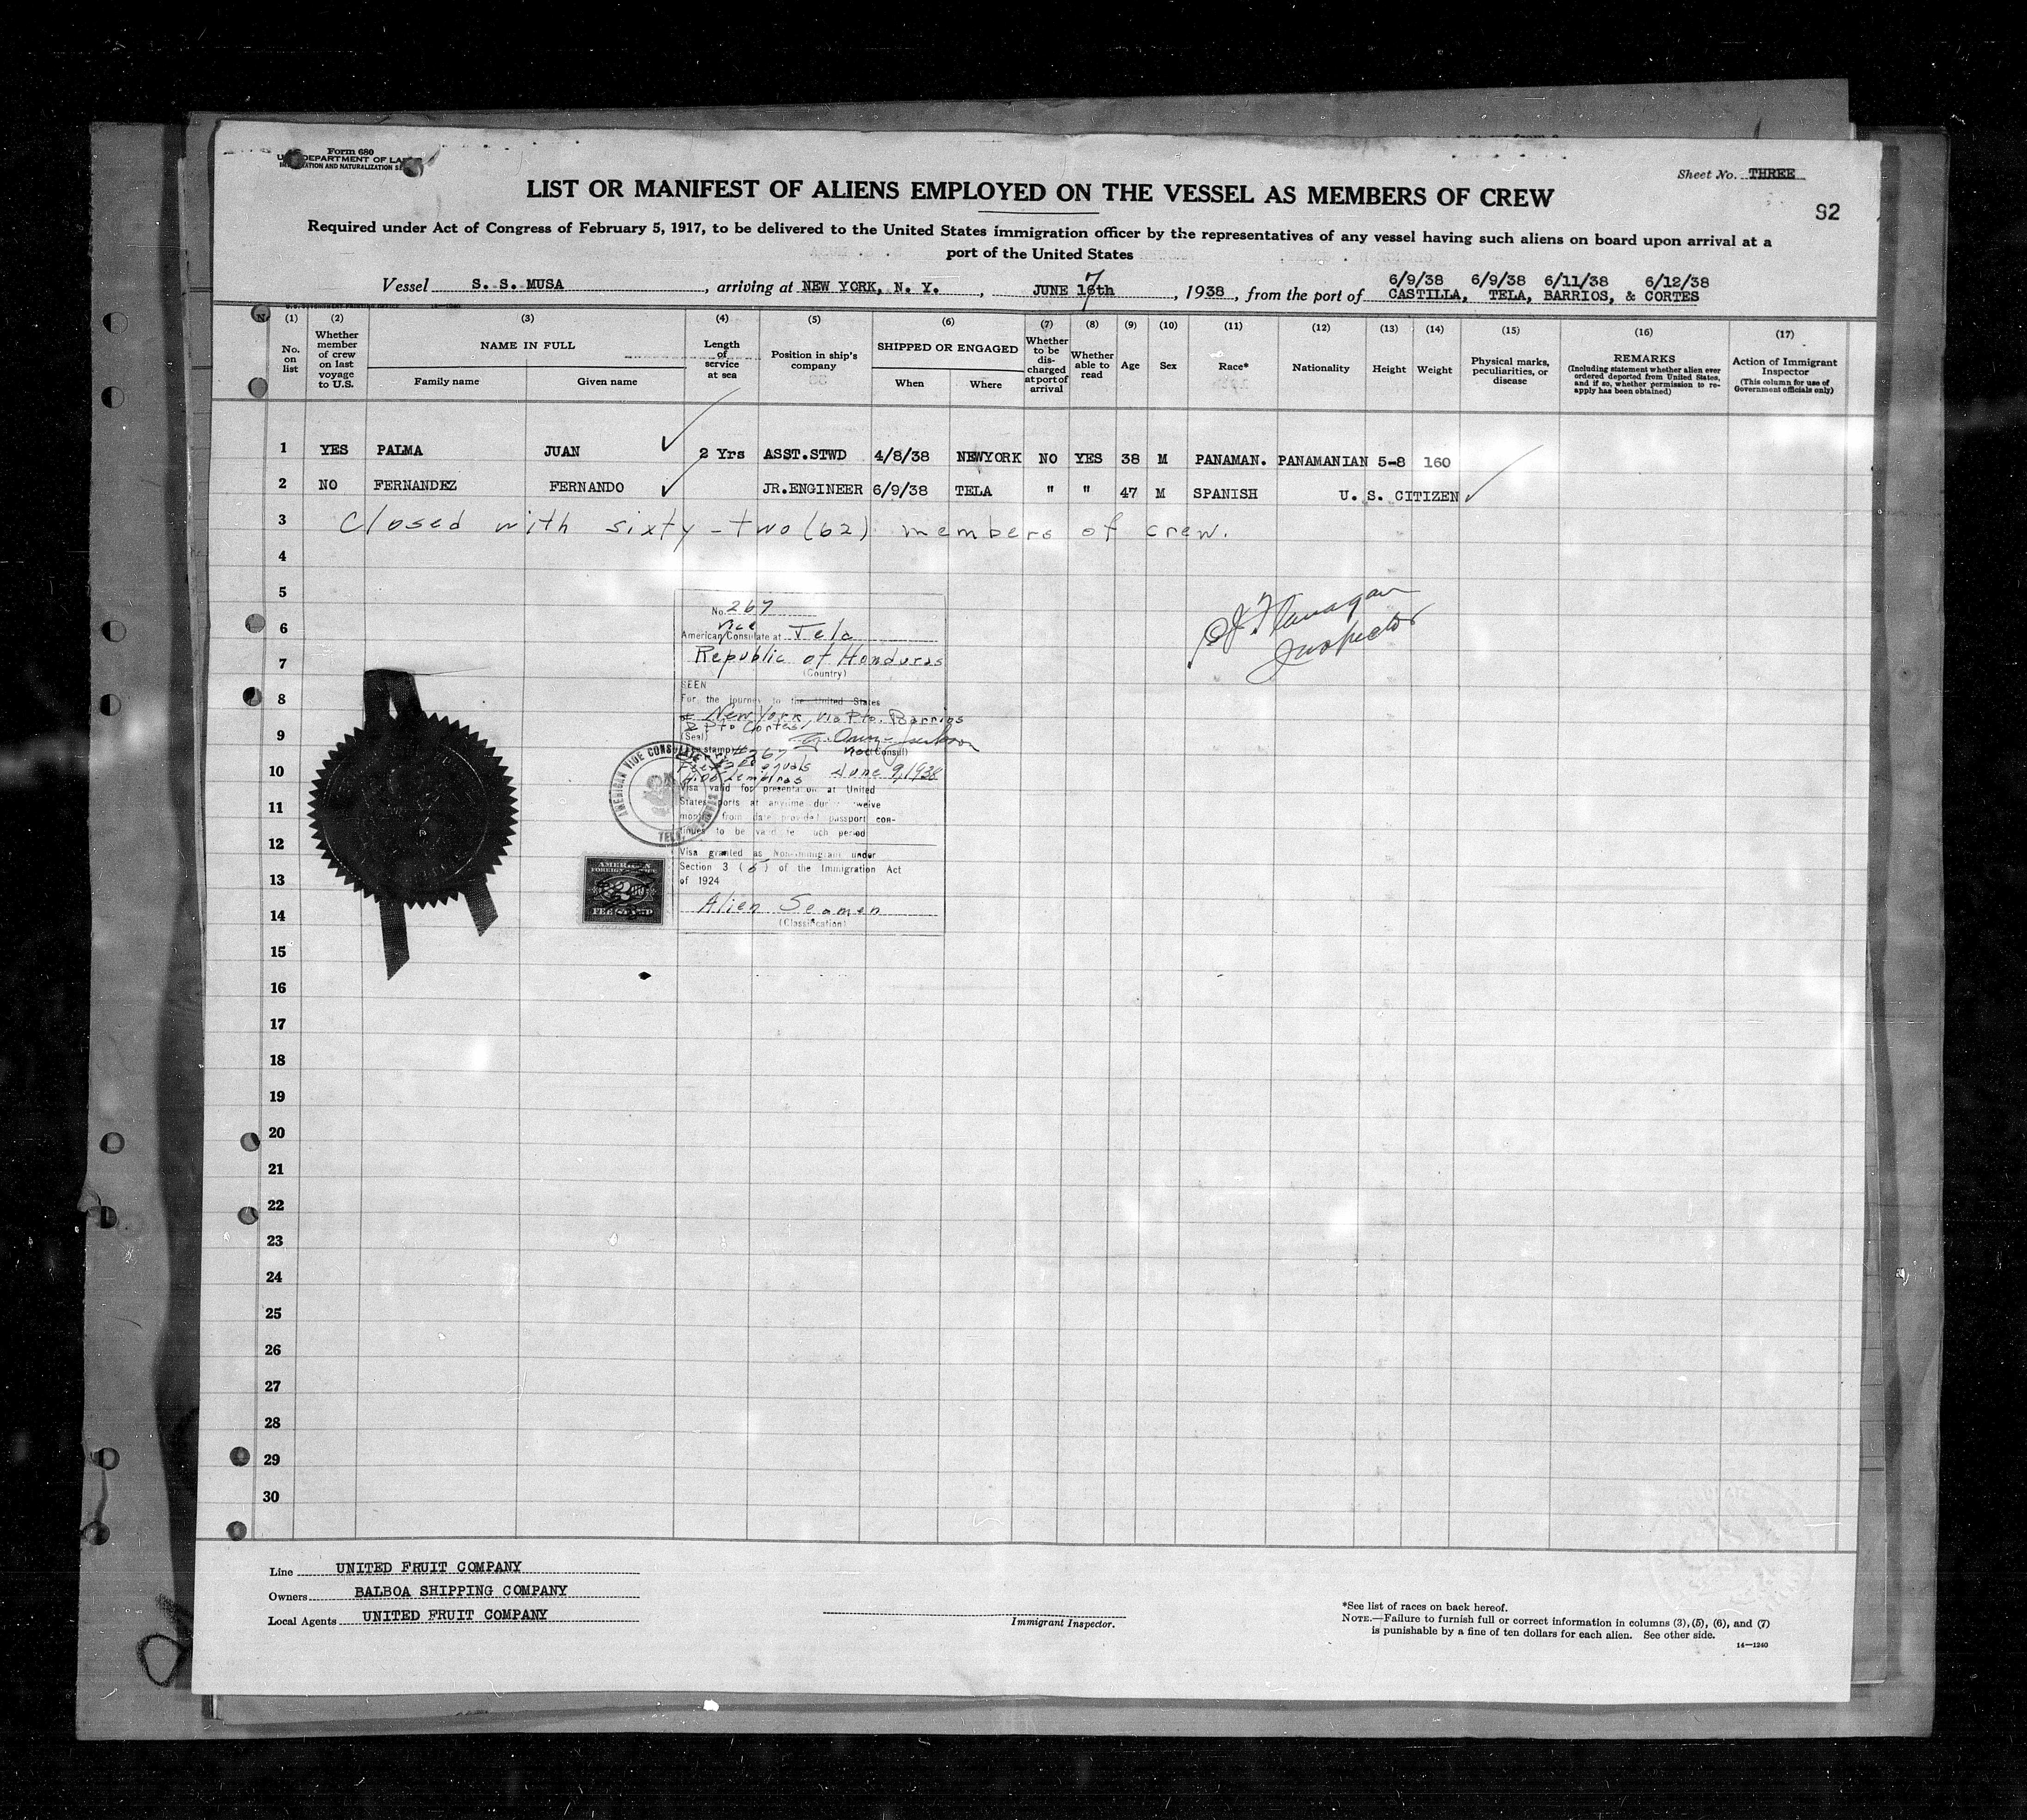 Form 680
DEPARTMENT OF LA
ATION AND NATURALIZATION SE
Sheet No. THREE
LIST OR MANIFEST OF ALIENS EMPLOYED ON THE VESSEL AS MEMBERS OF CREW
92
Required under Act of Congress of February 5, 1917, to be delivered to the United States immigration officer by the representatives of any vessel having such aliens on board upon arrival at a
port of the United States
6/9/38 6/9/38 6/11/38 6/12/38
Vessel S. S. MUSA, arriving at NEW YORK, N. Y., JUNE 16th 7, 1938, from the port of CASTILLA, TELA, BARRIOS, & CORTES
(1) (2) (3) (4) (5) (6) (7) (8) (9) (10) (11) (12) (13) (14) (15) (16) (17)
No. on list
Whether member of crew on last voyage to U.S.
NAME IN FULL
Family name Given name
Length of service at sea
Position in ship's company
SHIPPED OR ENGAGED
When Where
Whether to be discharged at port of arrival
Whether able to read
Age
Sex
Race*
Nationality
Height
Weight
Physical marks, peculiarities, or disease
REMARKS
(Including statement whether alien ever ordered deported from United States, and if so, whether permission to re-apply has been obtained)
Action of Immigrant Inspector
(This column for use of Government officials only)
1 YES PALMA JUAN 2 Yrs ASST.STWD 4/8/38 NEWYORK NO YES 38 M PANAMAN. PANAMANIAN 5-8 160
2 NO FERNANDEZ FERNANDO JR.ENGINEER 6/9/38 TELA " " 47 M SPANISH U. S. CITIZEN
3 Closed with sixty-two (62) members of crew.
4
5
6
7
8
9
10
11
12
13
14
15
16
17
18
19
20
21
22
23
24
25
26
27
28
29
30
No. 267
Vice
American Consulate at Tela
Republic of Honduras
(Country)
SEEN
For the journey to the United States
New York, via Pto. Barrios
& Pto Cortes
(Seal)
267
June 9, 1938
Visa valid for presentation at United
States ports at anytime during twelve
months from date provided passport con-
tinues to be valid for such period
Visa granted as Non-immigrant under
Section 3 (5) of the Immigration Act
of 1924
Alien Seamen
(Classification)
AMERICAN VICE CONSUL
TELA
AMERICAN
FOREIGN SERVICE
FEE STAMP
Flanagan
Inspector
Line UNITED FRUIT COMPANY
Owners BALBOA SHIPPING COMPANY
Local Agents UNITED FRUIT COMPANY
Immigrant Inspector.
*See list of races on back hereof.
NOTE.—Failure to furnish full or correct information in columns (3), (5), (6), and (7)
is punishable by a fine of ten dollars for each alien. See other side.
14—1240